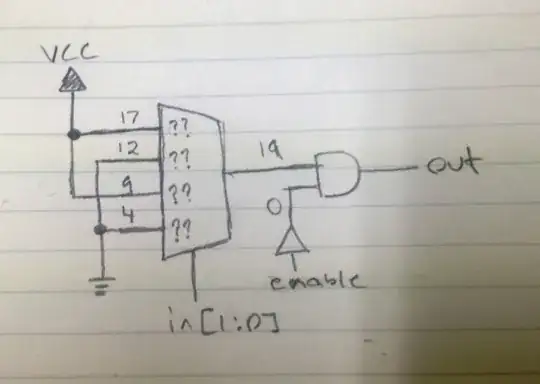 VCC
17 ??
12 ??
9 ??
4 ??
19
0
out
enable
in [1:0]